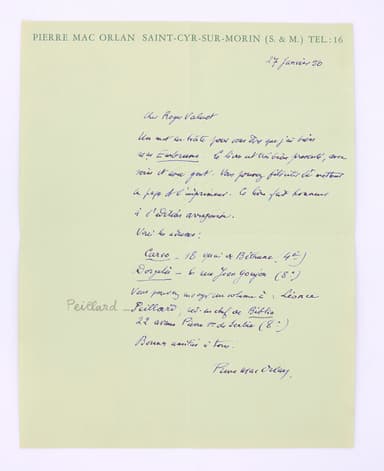 PIERRE MAC ORLAN SAINT-CYR-SUR-MORIN (S. & M.) TEL : 16
27 Janvier 50
Cher Roger Valuet
Un mot en hâte pour vous dire que j'ai bien
mes Embruns. Le livre est très bien présenté, avec
soin et avec goût. Vous pouvez féliciter le metteur
en page et l'imprimeur. Ce livre fait honneur
à l'édition
Voici les adresses :
Carco - 18 quai de Béthune, 4e)
Dorgelès - 6 rue Jean Goujon (8e)
Vous pouvez envoyer un volume à : Léonce
Peillard - Peillard, réd. en chef de Biblio
22 avenue Pierre 1er de Serbie (8e)
Bonnes amitiés à tous.
Pierre Mac Orlan